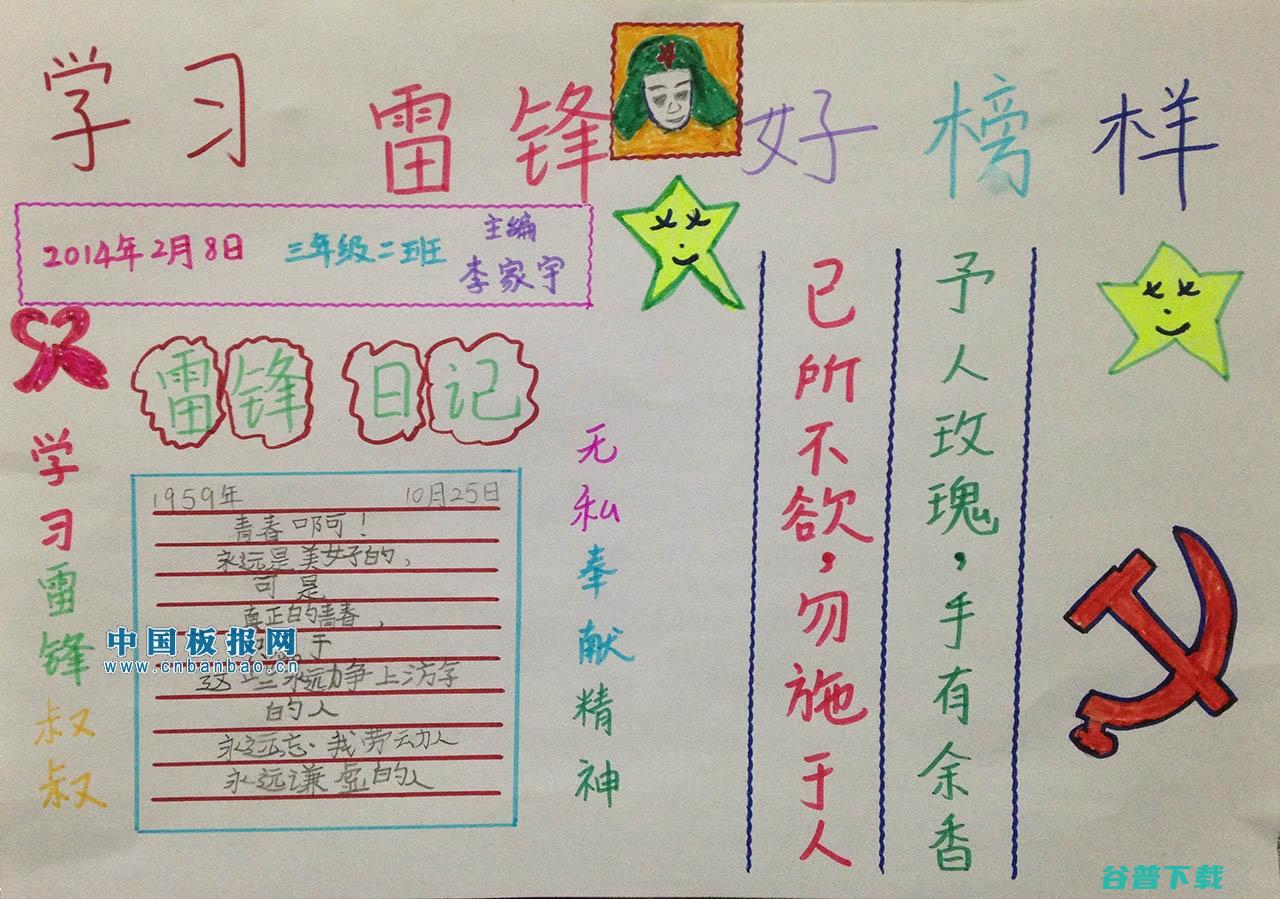 学习 雷锋好榜样
2014年2月8日 三年级二班 主编 李家宇
雷锋 日记
学习雷锋叔叔
1959年 10月25日
青春啊!
永远是美好的,
可是
真正的青春,
于
这些永远力争上游
的人
永远忘我劳动
永远谦虚的人
无私奉献精神
己所不欲,勿施于人
予人玫瑰,手有余香
中国板报网
www.cnbanbao.cn
谷普下载